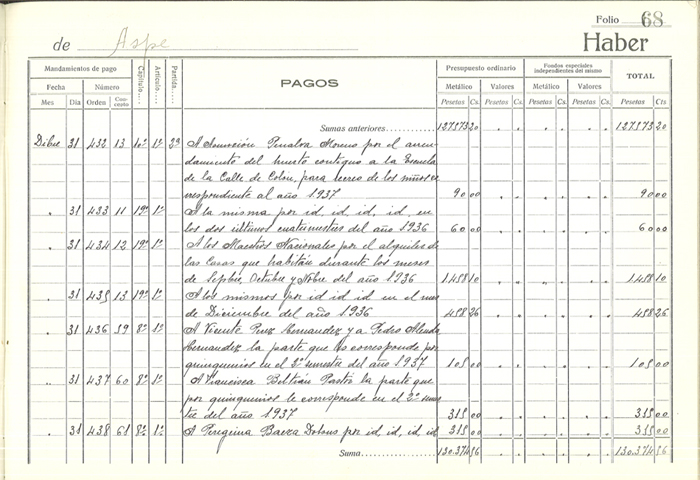 Folio 68
de Aspe
Haber
Mandamientos de pago
Fecha Número
Mes Día Orden Concepto
Capítulo.....
Artículo.....
Partida.....
PAGOS
Presupuesto ordinario
Metálico Valores
Pesetas Cs. Pesetas Cs.
Fondos especiales
independientes del mismo
Metálico Valores
Pesetas Cs. Pesetas Cs.
TOTAL
Pesetas Cts
Sumas anteriores............ 127573 20 127573 20
Dibre 31 432 13 10º 1º 2ª A Asunción Penalva Moreno por el arren-
damiento del huerto contiguo a la Escuela
de la Calle de Colón, para recreo de los niños co
rrespondiente al año 1937 90 00 90 00
" 31 433 11 19º 1º A la misma por id, id, id, id, en
los dos últimos cuatrimestres del año 1936 60 00 60 00
" 31 434 12 19º 1º A los Maestros Nacionales por el alquiler de
las Casas que habitan durante los meses
de Sepbre, Octubre y Nobre del año 1936 1.458 10 1.458 10
" 31 435 13 19º 1º A los mismos por id id id en el mes
de Diciembre del año 1936 458 26 458 26
" 31 436 59 8º 1º A Vicente Perez Hernandez y a Pedro Alenda
Hernandez la parte que les corresponde por
quinquenios en el 2º semestre del año 1937 105 00 105 00
" 31 437 60 8º 1º A Francisca Beltrán Pastor la parte que
por quinquenios le corresponde en el 2º semes
tre del año 1937 315 00 315 00
" 31 438 61 8º 1º A Peregrina Baeza por id, id, id, id 315 00 315 00
Suma............ 130.374 56 130.374 56